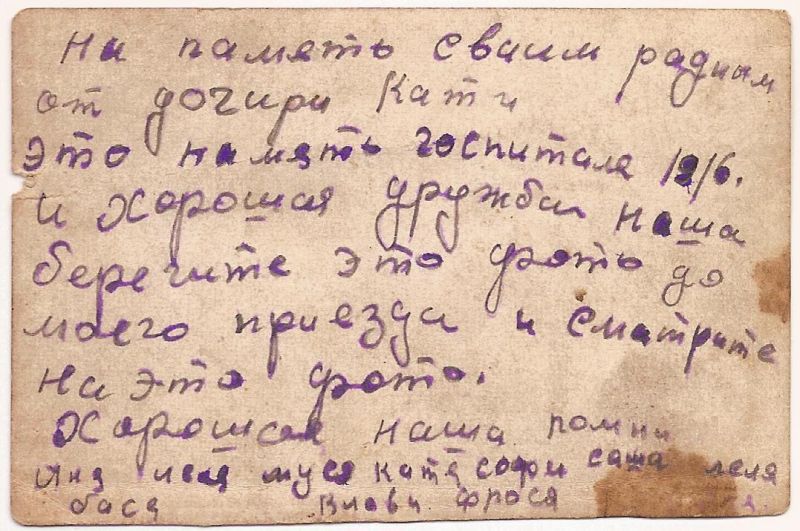 На память сваим радным
от дочири Кати
Это память госпиталя 1916.
и хорошая дружба наша
беречите это фото до
моего приезда и сматрите
на это фото.
Хорошая наша помни
муся катя софи саша леля
бася фрося